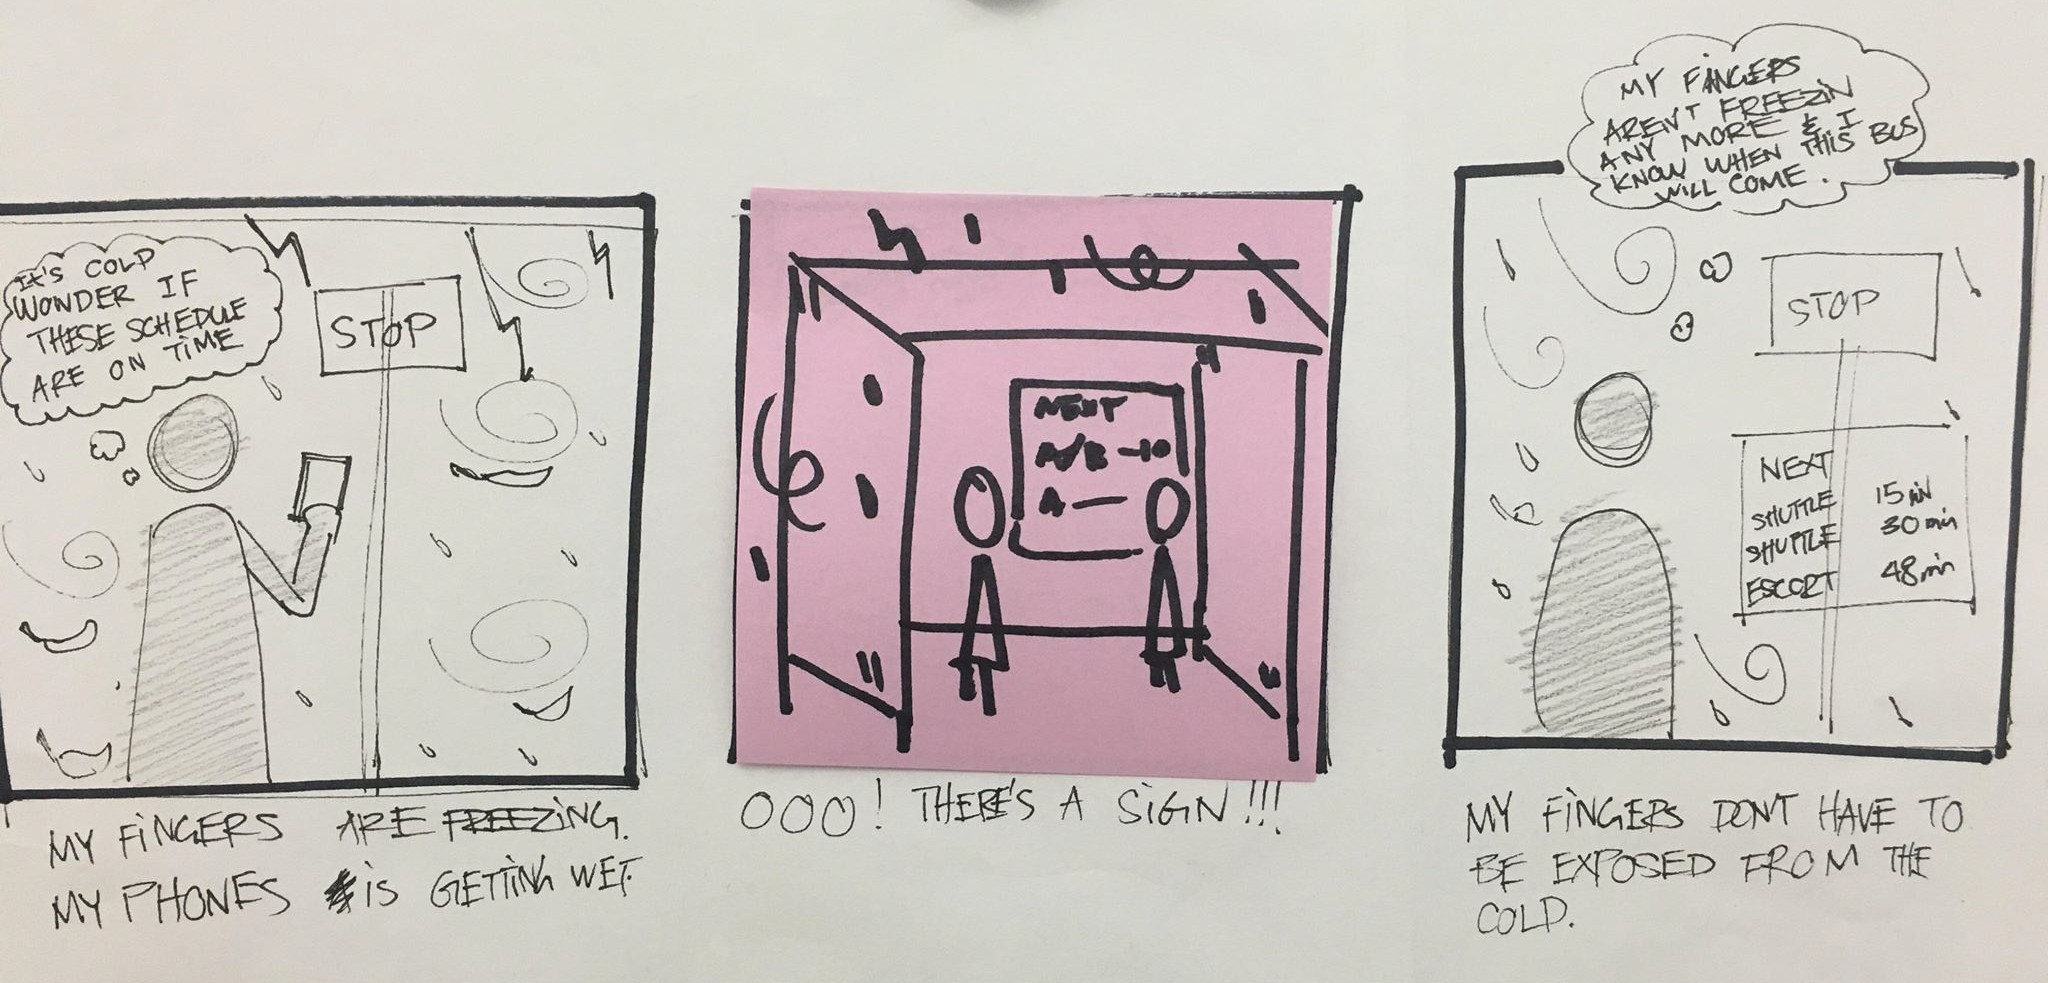 IT'S COLD
WONDER IF
THESE SCHEDULE
ARE ON TIME
STOP
MY FINGERS ARE FREEZING.
MY PHONES IS GETTING WET.
NEXT
A/B -10
A —
OOO! THERE'S A SIGN!!!
MY FINGERS
AREN'T FREEZIN
ANY MORE & I
KNOW WHEN THIS BUS
WILL COME.
STOP
NEXT
SHUTTLE 15 min
SHUTTLE 30 min
ESCORT 48 min
MY FINGERS DONT HAVE TO
BE EXPOSED FROM THE
COLD.